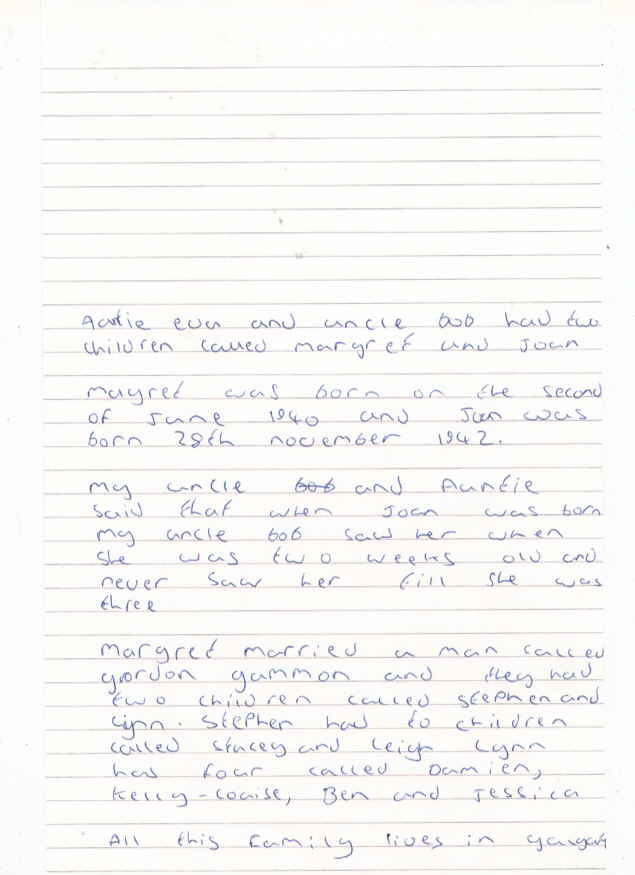 Auntie eva and uncle bob had two
children called margret and Joan
Magret was born on the second
of June 1940 and Joan was
born 28th november 1942.
my uncle bob and Auntie
said that when Joan was born
my uncle bob saw her when
she was two weeks old and
never saw her till she was
three
Margret married a man called
gordon gammon and they had
two children called stephen and
Lynn. Stephen had to children
called Stacey and Leigh Lynn
has four called Damien,
Kelly-Louise, Ben and Jessica
All this family lives in